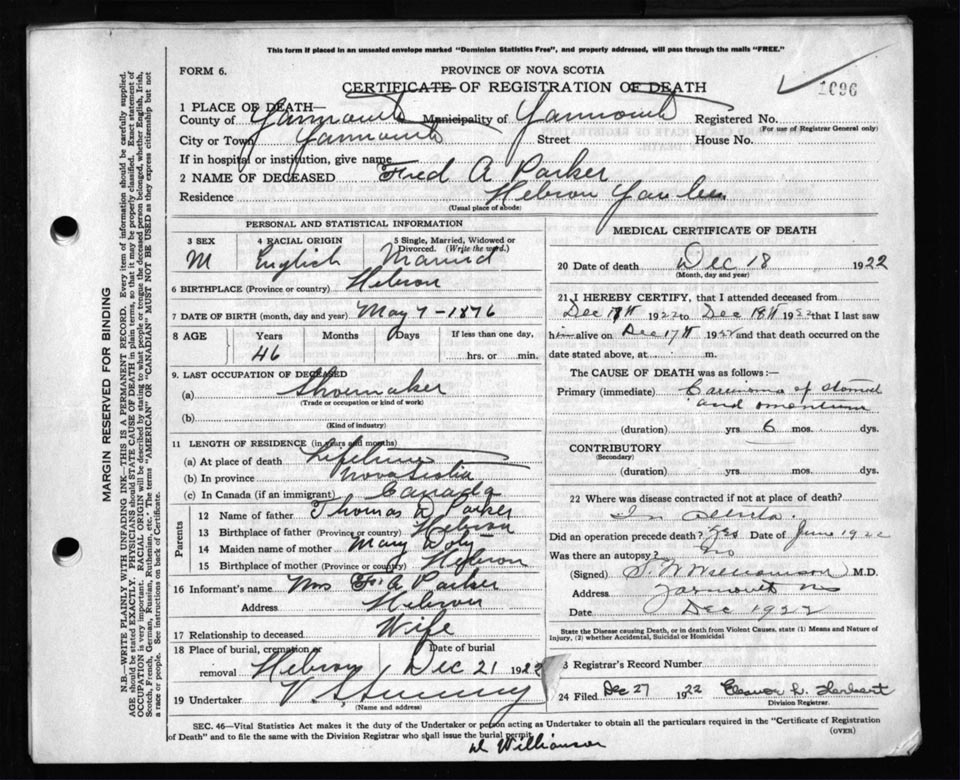 This form if placed in an unsealed envelope marked "Dominion Statistics Free", and properly addressed, will pass through the mails "FREE."
FORM 6.
PROVINCE OF NOVA SCOTIA
CERTIFICATE OF REGISTRATION OF DEATH
1696
1 PLACE OF DEATH—
County of Yarmouth Municipality of Yarmouth Registered No.
(For use of Registrar General only)
City or Town Yarmouth Street House No.
If in hospital or institution, give name
2 NAME OF DECEASED Fred A Parker
Residence Hebron
(Usual place of abode)
PERSONAL AND STATISTICAL INFORMATION
3 SEX 4 RACIAL ORIGIN 5 Single, Married, Widowed or Divorced. (Write the word.)
M English Married
6 BIRTHPLACE (Province or country) Hebron
7 DATE OF BIRTH (month, day and year) May 7 - 1876
8 AGE Years Months Days If less than one day,
46 hrs. or min.
9. LAST OCCUPATION OF DECEASED
(a) Shoemaker
(Trade or occupation or kind of work)
(b)
(Kind of industry)
11 LENGTH OF RESIDENCE (in years and months)
(a) At place of death Lifetime
(b) In province Nova Scotia
(c) In Canada (if an immigrant) Canada
Parents
12 Name of father Thomas Parker
13 Birthplace of father (Province or country) Hebron
14 Maiden name of mother Mary Doty
15 Birthplace of mother (Province or country) Hebron
16 Informant's name Mrs F A Parker
Address Hebron
17 Relationship to deceased Wife
18 Place of burial, cremation or removal Date of burial
Hebron Dec 21 1922
19 Undertaker
(Name and address)
MEDICAL CERTIFICATE OF DEATH
20 Date of death Dec 18 1922
(Month, day and year)
21 I HEREBY CERTIFY, that I attended deceased from
Dec 1922 to Dec 18th 1922 that I last saw
him alive on Dec 17th 1922 and that death occurred on the
date stated above, at m.
The CAUSE OF DEATH was as follows:—
Primary (immediate) Carcinoma of stomach
and omentum
(duration) yrs 6 mos. dys.
CONTRIBUTORY
(Secondary)
(duration) yrs. mos. dys.
22 Where was disease contracted if not at place of death?
In
Did an operation precede death? Yes Date of June 1922
Was there an autopsy? No
(Signed) Williamson M.D.
Address Yarmouth NS
Date Dec 1922
State the Disease causing Death, or in death from Violent Causes, state (1) Means and Nature of Injury, (2) whether Accidental, Suicidal or Homicidal
3 Registrar's Record Number
24 Filed Dec 27 1922 Eleanor L. Herbert
Division Registrar.
SEC. 46—Vital Statistics Act makes it the duty of the Undertaker or person acting as Undertaker to obtain all the particulars required in the "Certificate of Registration
of Death" and to file the same with the Division Registrar who shall issue the burial permit.
(OVER)
Williamson
MARGIN RESERVED FOR BINDING
N.B.—WRITE PLAINLY WITH UNFADING INK—THIS IS A PERMANENT RECORD. Every item of information should be carefully supplied.
AGE should be stated EXACTLY. PHYSICIANS should STATE CAUSE OF DEATH in plain terms, so that it may be properly classified. Exact statement of
OCCUPATION is very important. RACIAL ORIGIN will be described by stating to what people or tongue the deceased person belonged, whether English, Irish,
Scotch, French, German, Russian, Ruthenian, etc. The terms "AMERICAN" OR "CANADIAN" MUST NOT BE USED as they express citizenship but not
a race or people. See instructions on back of Certificate.